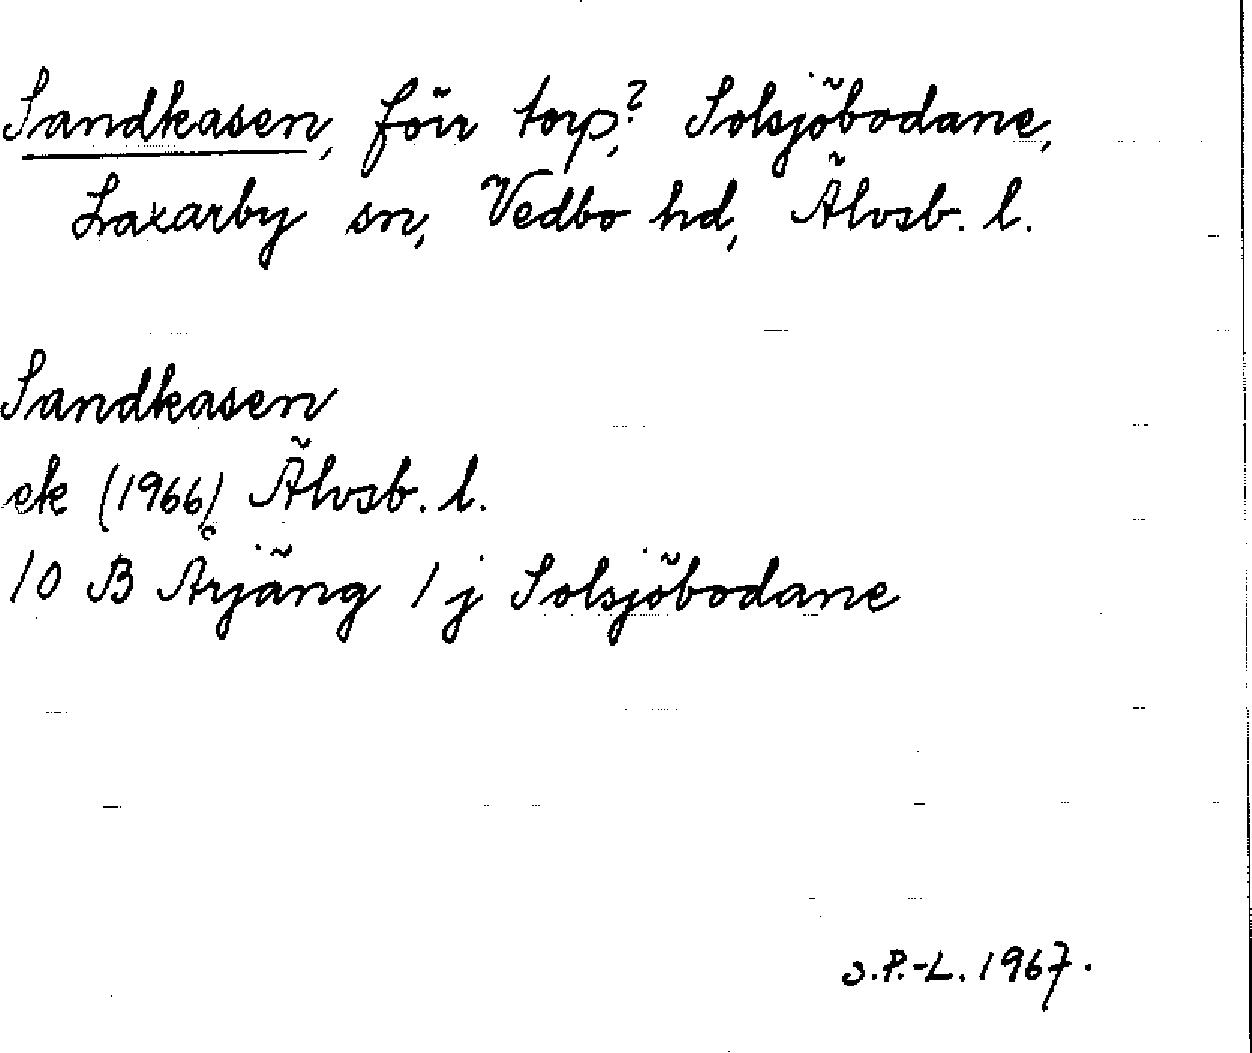 Sandkasen, förr torp?, Solsjöbodane,
Laxarby sn, Vedbo hd, Älvsb. l.
Sandkasen
ek (1966) Älvsb. l.
10 B Årjäng 1 j Solsjöbodane
S.P.-L. 1967.